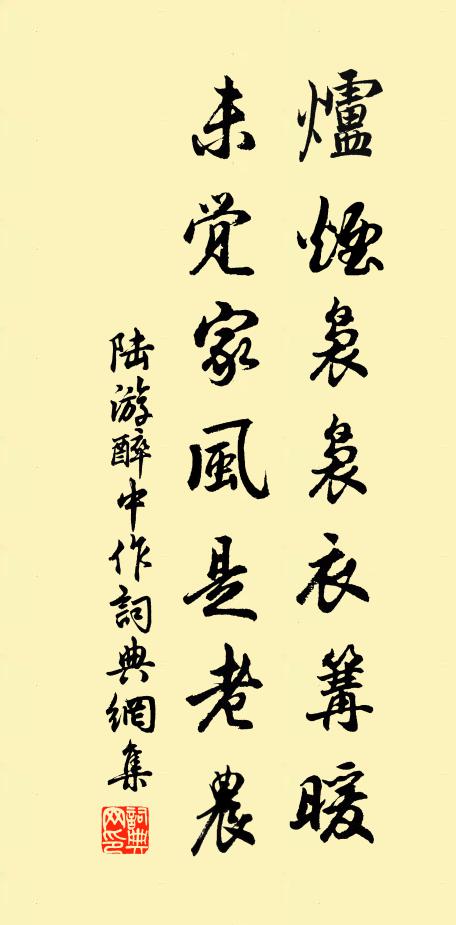 爐煙裊裊衣篝暖
未覚家風是老農
陆游醉中作詞典網集
詞典网印